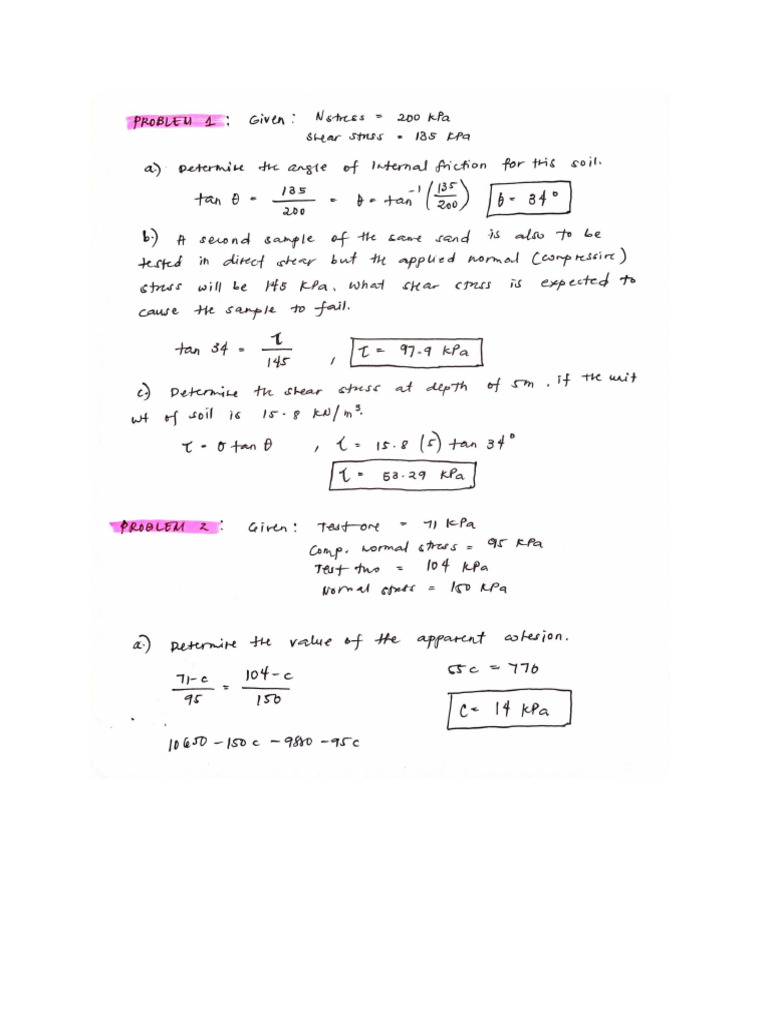 PROBLEM 1 : Given : Nstress = 200 kPa
Shear stress = 135 kPa
a.) Determine the angle of internal friction for this soil.
tan θ = 135/200 = θ = tan⁻¹ (135/200) θ = 34°
b.) A second sample of the same sand is also to be
tested in direct shear but the applied normal (compressive)
stress will be 145 kPa. What shear stress is expected to
cause the sample to fail.
tan 34 = τ/145 , τ = 97.9 kPa
c.) Determine the shear stress at depth of 5m, if the unit
wt of soil is 15.8 kN/m³.
τ = σ tan θ , τ = 15.8 (5) tan 34°
τ = 53.29 kPa
PROBLEM 2 : Given : Test one = 71 kPa
Comp. normal stress = 95 kPa
Test two = 104 kPa
Normal stress = 150 kPa
a.) Determine the value of the apparent cohesion.
71-c/95 = 104-c/150
55c = 770
c = 14 kPa
10650 - 150c - 9880 - 95c